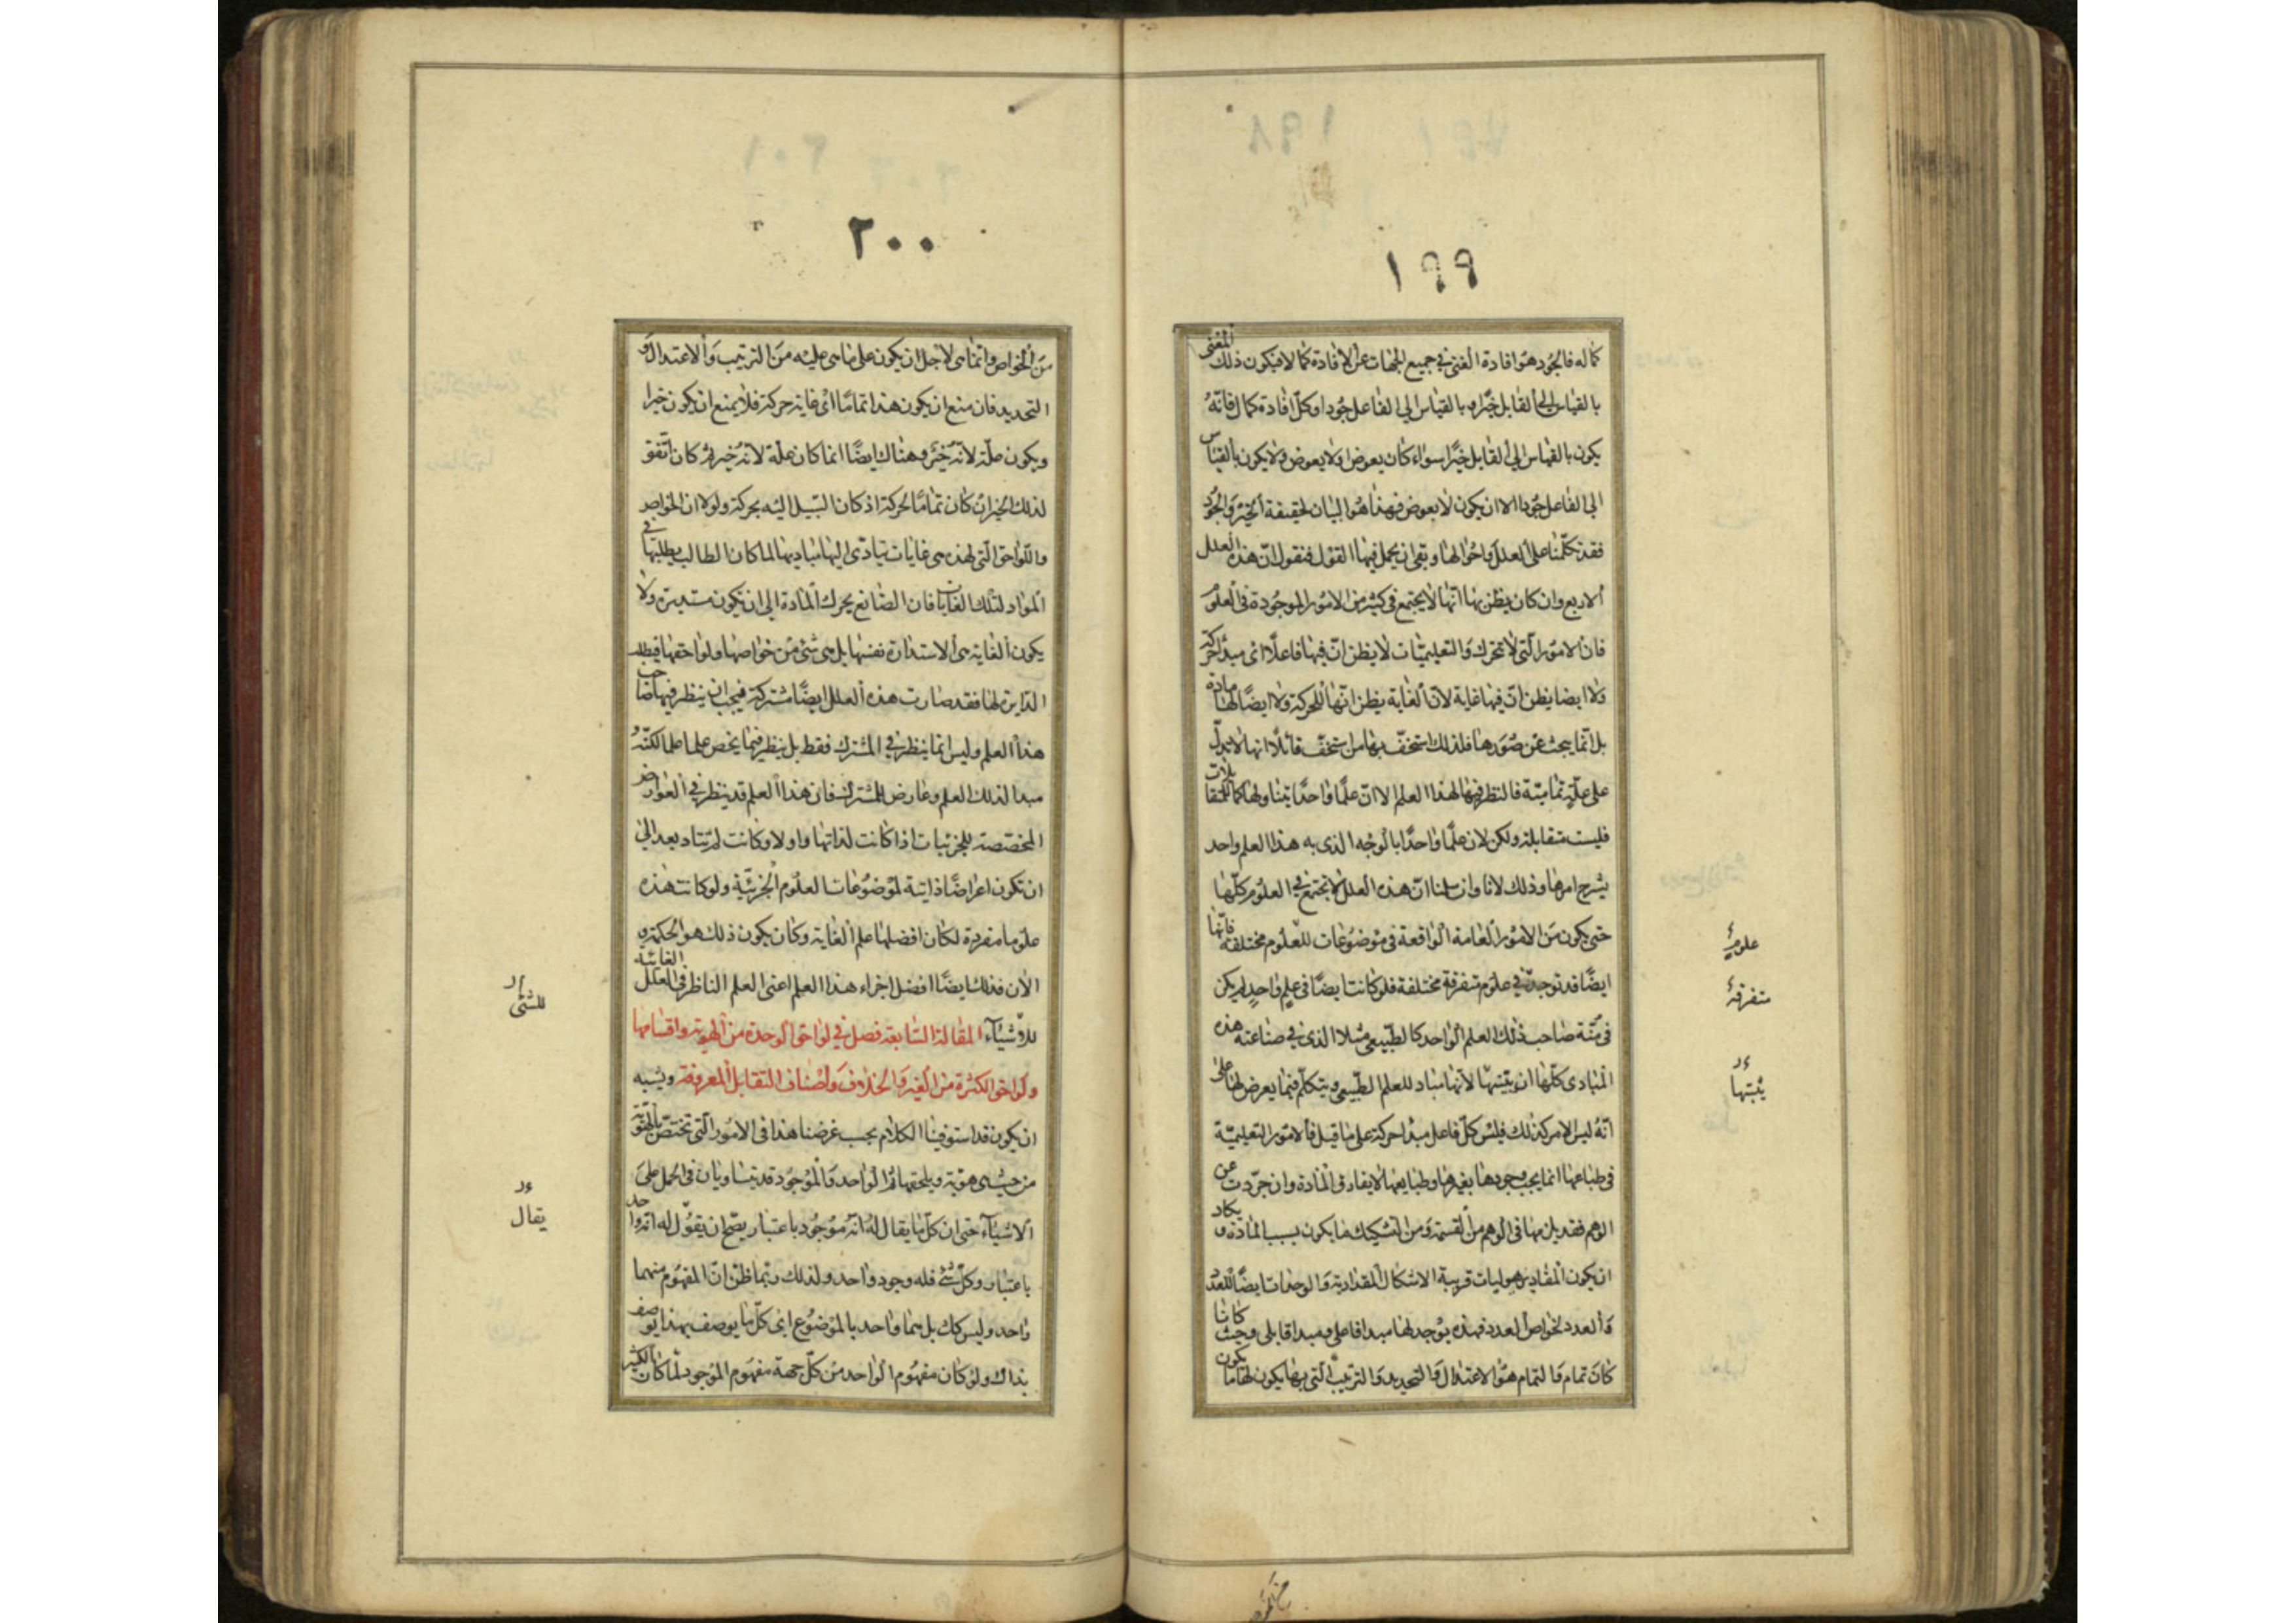 ١٩٩
كماله فالجود هو افادة الغنى في جميع الجهات عن الافادة كمالا فيكون ذلك المعنى
بالقياس الى القابل خيرا وبالقياس الى الفاعل جودا وكل افادة كمال فانه
يكون بالقياس الى القابل خيرا سواء كان بعوض او لا بعوض ولا يكون بالقياس
الى الفاعل جودا الا ان يكون لا بعوض فهذا هو البيان لحقيقة الخير والجود
فقد تكلمنا على العلل واحوالها وبقى ان يحمل فيها القول فنقول ان هذه العلل
الاربع وان كان يظن بها انها لا يجتمع في كثير من الامور الموجودة في العلوم
فان الامور التى لا تتحرك والتعليميات لا يظن ان فيها فاعلا اى مبدأ حركة
ولا ايضا يظن ان فيها غاية لان الغاية يظن انها للحركة ولا ايضا لها مادة
بل انما يبحث عن صورها فلذلك استخف بها من استخف قائلا انها لا يدل
على علة تمامية فالنظر فيها لهذا العلم لا ان علما واحدا يتناولها كالمتقابلات
فليست متقابلة ولكن لان علما واحدا بالوجه الذى به هذا العلم واحد
يشرح امرها وذلك لانا وان سلمنا ان هذه العلل لا تجتمع في العلوم كلها
حتى يكون من الامور العامة الواقعة في موضوعات للعلوم مختلفة فانها
ايضا قد توجد في علوم متفرقة مختلفة فلو كانت ايضا في علم واحد لم يكن
في منة صاحب ذلك العلم الواحد كالطبيعى مثلا الذى في صناعته هذه
المبادى كلها ان يثبتها لانها مباد للعلم الطبيعى ويتكلم فيما يعرض لها على
انه ليس الامر كذلك فليس كل فاعل مبدأ حركة على ما قيل فالامور التعليمية
في طباعها انما يجب وجودها بغيرها وطبايعها لا يفارق المادة وان جردت عن
الوهم فقد يلزمها في الوهم من القسمة ومن التشكيك ما يكون بسبب المادة و يكاد
ان يكون المقادير هيوليات قريبة الاشكال المقدارية والوحدات ايضا للعدد
والعدد لخواص العدد فهذه يوجد لها مبدا فاعلى ومبدا قابلى وحيث كانا
كان تمام فالتمام هو الاعتدال والتحديد والترتيب التى بها يكون لها ما يكون
علوم
متفرقة
يثبتها
٢٠٠
من الخواص وانما هى لاجل ان يكون على ما هى عليه من الترتيب والاعتدال و
التحديد فان منع ان يكون هذا تماما اى غاية حركة فلا يمنع ان يكون خيرا
ويكون علة لانه خير وهناك ايضا انما كان علة لانه خير ثم كان اتفق
لذلك الخير ان كان تماما لحركة اذ كان السبيل اليه بحركة ولولا ان الخواص
واللواحق التى لهذه هى غايات تيادى اليها مباديها لما كان الطالب يطلبها في
المواد لتلك الغايات فان الصانع يحرك المادة الى ان تكون مستديرة ولا
يكون الغاية هى الاستدارة نفسها بل هى شئ من خواصها ولواحقها فيطلب
الدايرة لها فقد صارت هذه العلل ايضا مشتركة فيجب ان ينظر فيها صاحب
هذا العلم وليس انما ينظر في المشترك فقط بل ينظر فيما يخص علما علما لكنه
مبدا لذلك العلم وعارض للمشترك فان هذا العلم قد ينظر في العوارض
المخصصة للجزئيات اذا كانت لذاتها واولا وكانت لم يتاد بعد الى
ان تكون اعراضا ذاتية لموضوعات العلوم الجزئية ولو كانت هذه
علوما منفردة لكان افضلها علم الغاية وكان يكون ذلك هو الحكمة و
الان فذلك ايضا افضل اجزاء هذا العلم اعنى العلم الناظر في العلل الغائية
للاشياء المقالة السابعة فصل في لواحق الوحدة من الهوية واقسامها
ولواحق الكثرة من الغيرية والخلاف واصناف التقابل المعروفة ويشبه
ان يكون قد استوفينا الكلام بحسب غرضنا هذا في الامور التى تختص بالهوية
من حيث هى هوية ويلحقها ثم الواحد والموجود قد يتساويان في الحمل على
الاشياء حتى ان كل ما يقال له انه موجود باعتبار يصح ان يقول له انه واحد
باعتبار وكل شئ فله وجود واحد ولذلك ربما ظن ان المفهوم منهما
واحد وليس كك بل هما واحد بالموضوع اى كل ما يوصف بهذا يوصف
بذاك ولو كان مفهوم الواحد من كل جهة مفهوم الموجود لما كان الكثير
للشئ
يقال